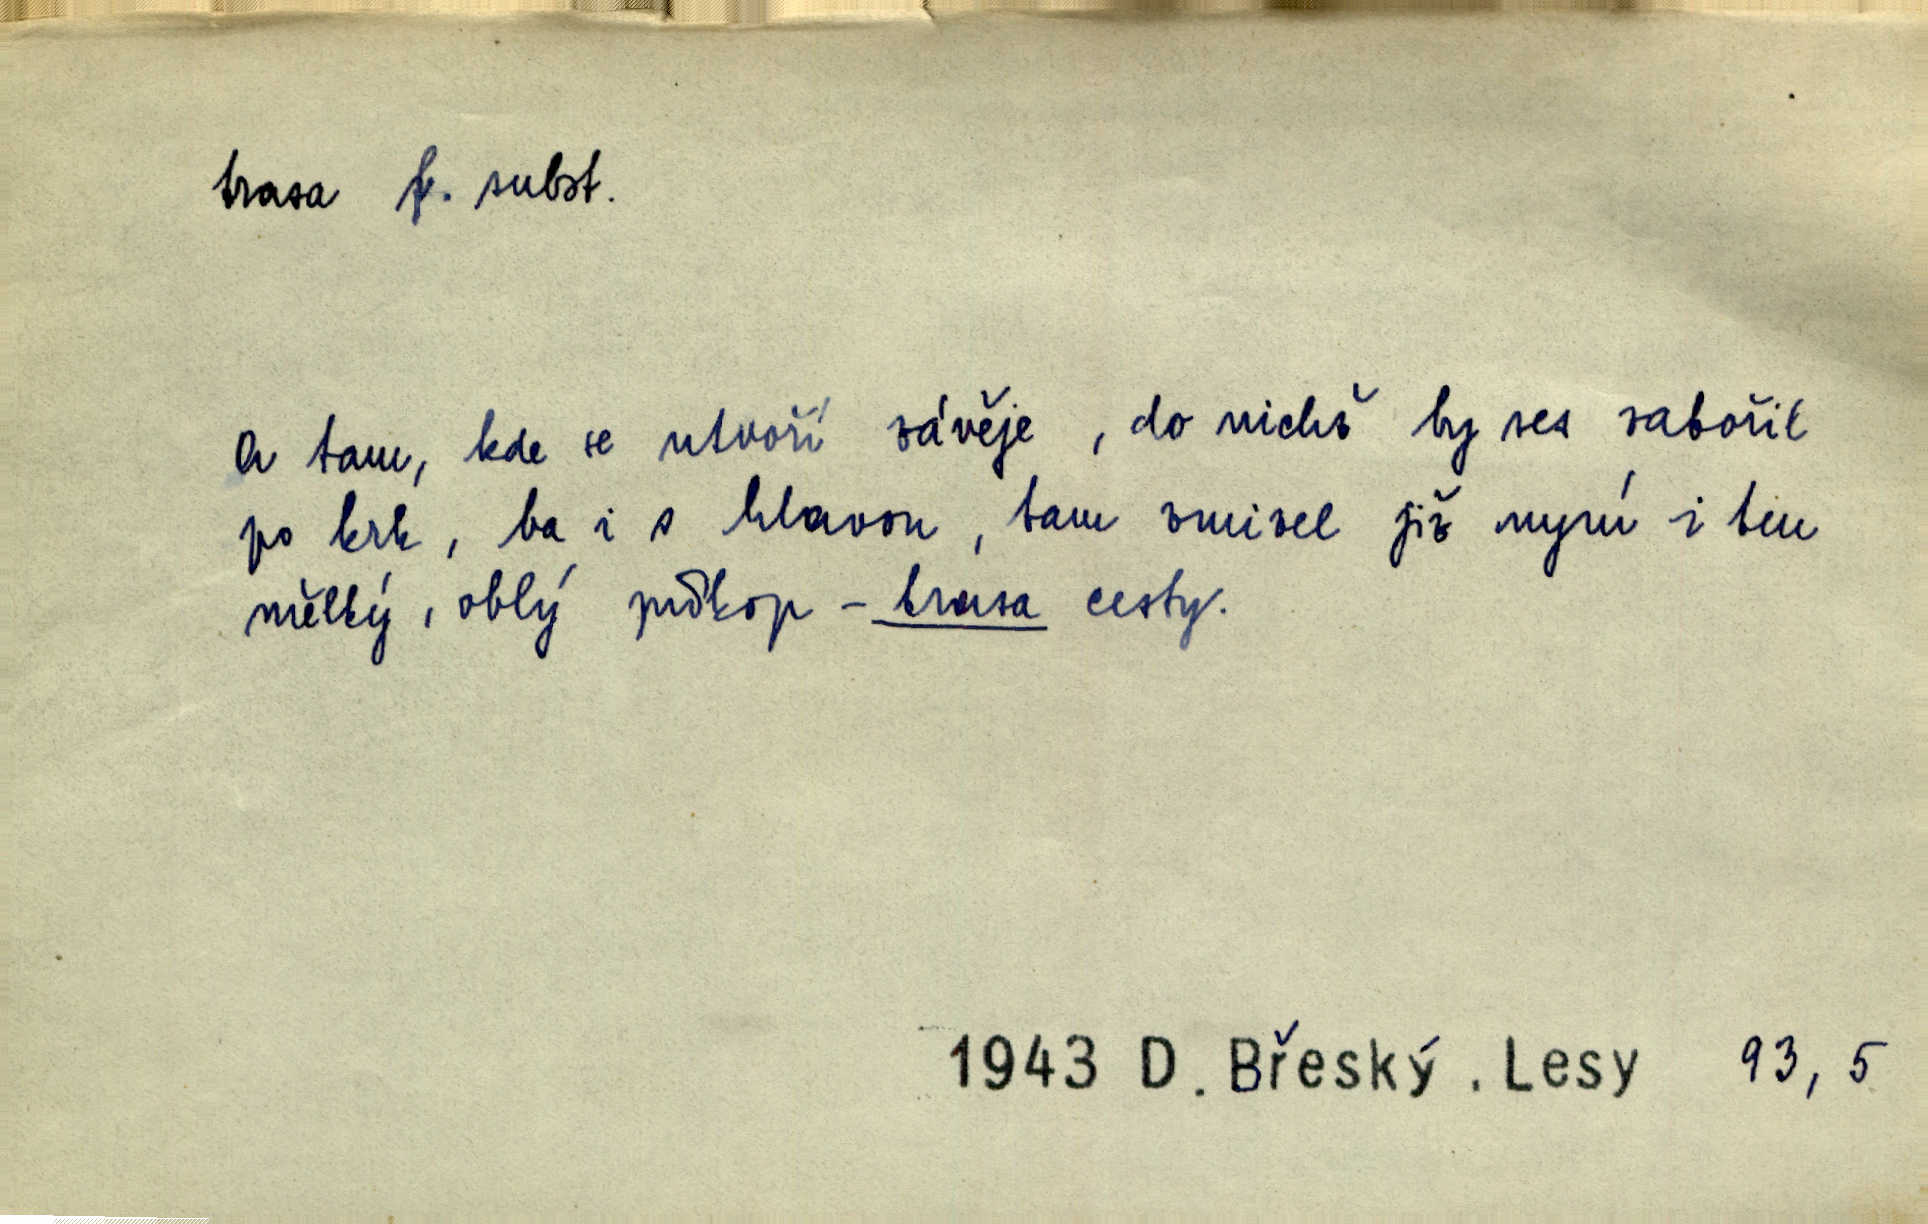 trasa f. subst.
A tam, kde se utvoří závěje, do nichž by ses zabořil
po krk, ba i s hlavou, tam zmizel již nyní i ten
mělký, oblý příkop – trasa cesty.
1943 D. Břeský. Lesy 93, 5